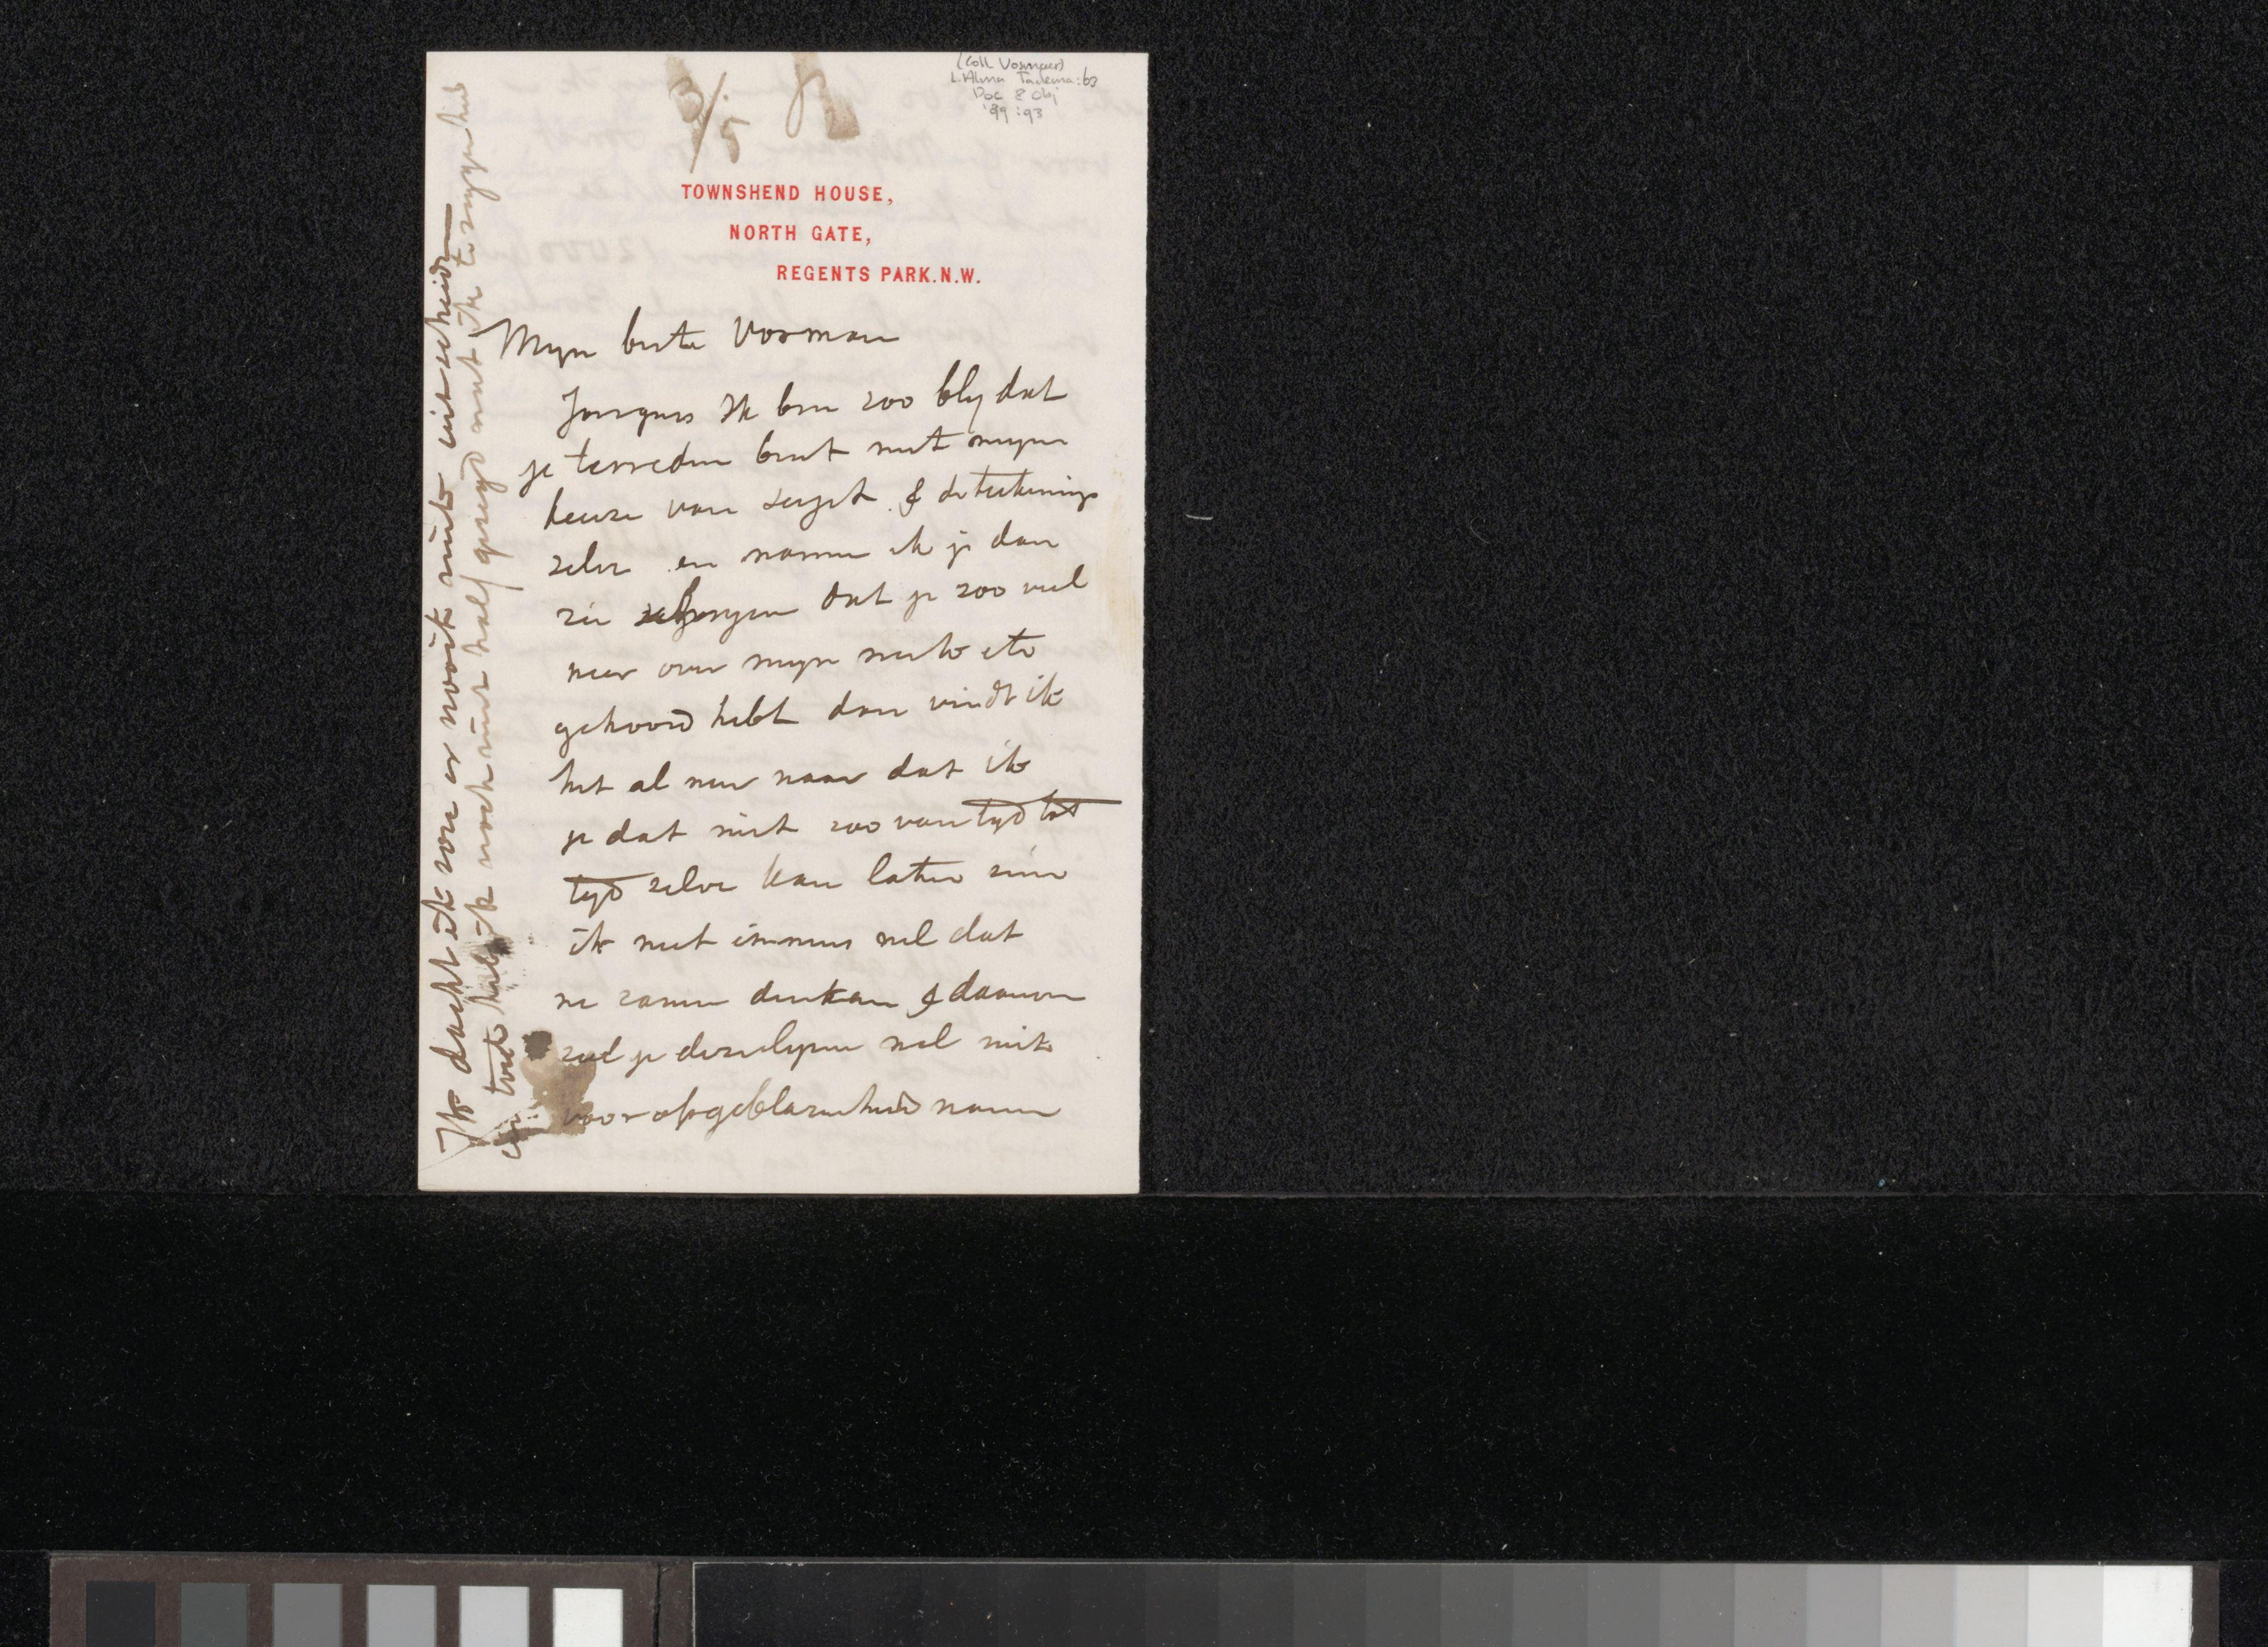 3/5
(Coll Vosmaer)
L. Alma Tadema: 63
Doc & Obj
'89:93
TOWNSHEND HOUSE,
NORTH GATE,
REGENTS PARK.N.W.
Myn beste Vosman
Jongens Ik ben zoo bly dat
je tevreden bent met myne
keuze van &  de tekening
zelve en wanneer ik je dan
zie dat je zoo veel
meer over myn werk etc
gehoord hebt dan vindt ik
het al meer naar dat ik
je dat niet zoo van tyd tot
tyd zelve kan laten zien
ik weet immers wel dat
we samen denken & daarom
zul je deze lynen wel niet
voor opgeblazenheid nemen
Ik dacht ik zou er nooit mede uitscheiden
en toch heb ik noch niet half gezegd wat ik te zeggen heb